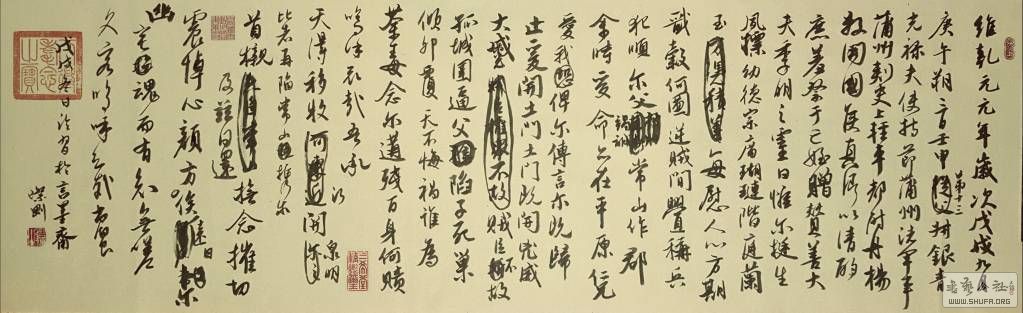 維乾元元年歲次戊戌九月
庚午朔三日壬申第十三叔銀青
光祿夫使持節蒲州諸軍事
蒲州刺史上輕車都尉丹楊
縣開國侯真卿以清酌
庶羞祭于亡姪贈贊善大
夫季明之靈曰惟爾挺生
夙標幼德宗廟瑚璉階庭蘭
玉每慰人心方期
戩穀何圖逆賊間釁稱兵
犯順爾父竭誠常山作郡
余時受命亦在平原仁兄
愛我俾爾傳言爾既歸
止爰開土門土門既開兇威
大蹙賊臣不救
孤城圍逼父陷子死巢
傾卵覆天不悔禍誰為
荼毒念爾遘殘百身何贖
嗚呼哀哉吾承
天澤移牧河關泉明
比者再陷常山攜爾
首櫬及茲同還撫念摧切
震悼心顏方俟遠日卜爾
幽宅魂而有知無嗟
久客嗚呼哀哉尚饗
戊戌冬日法習於言墨齋
WWW.SHUFA.ORG